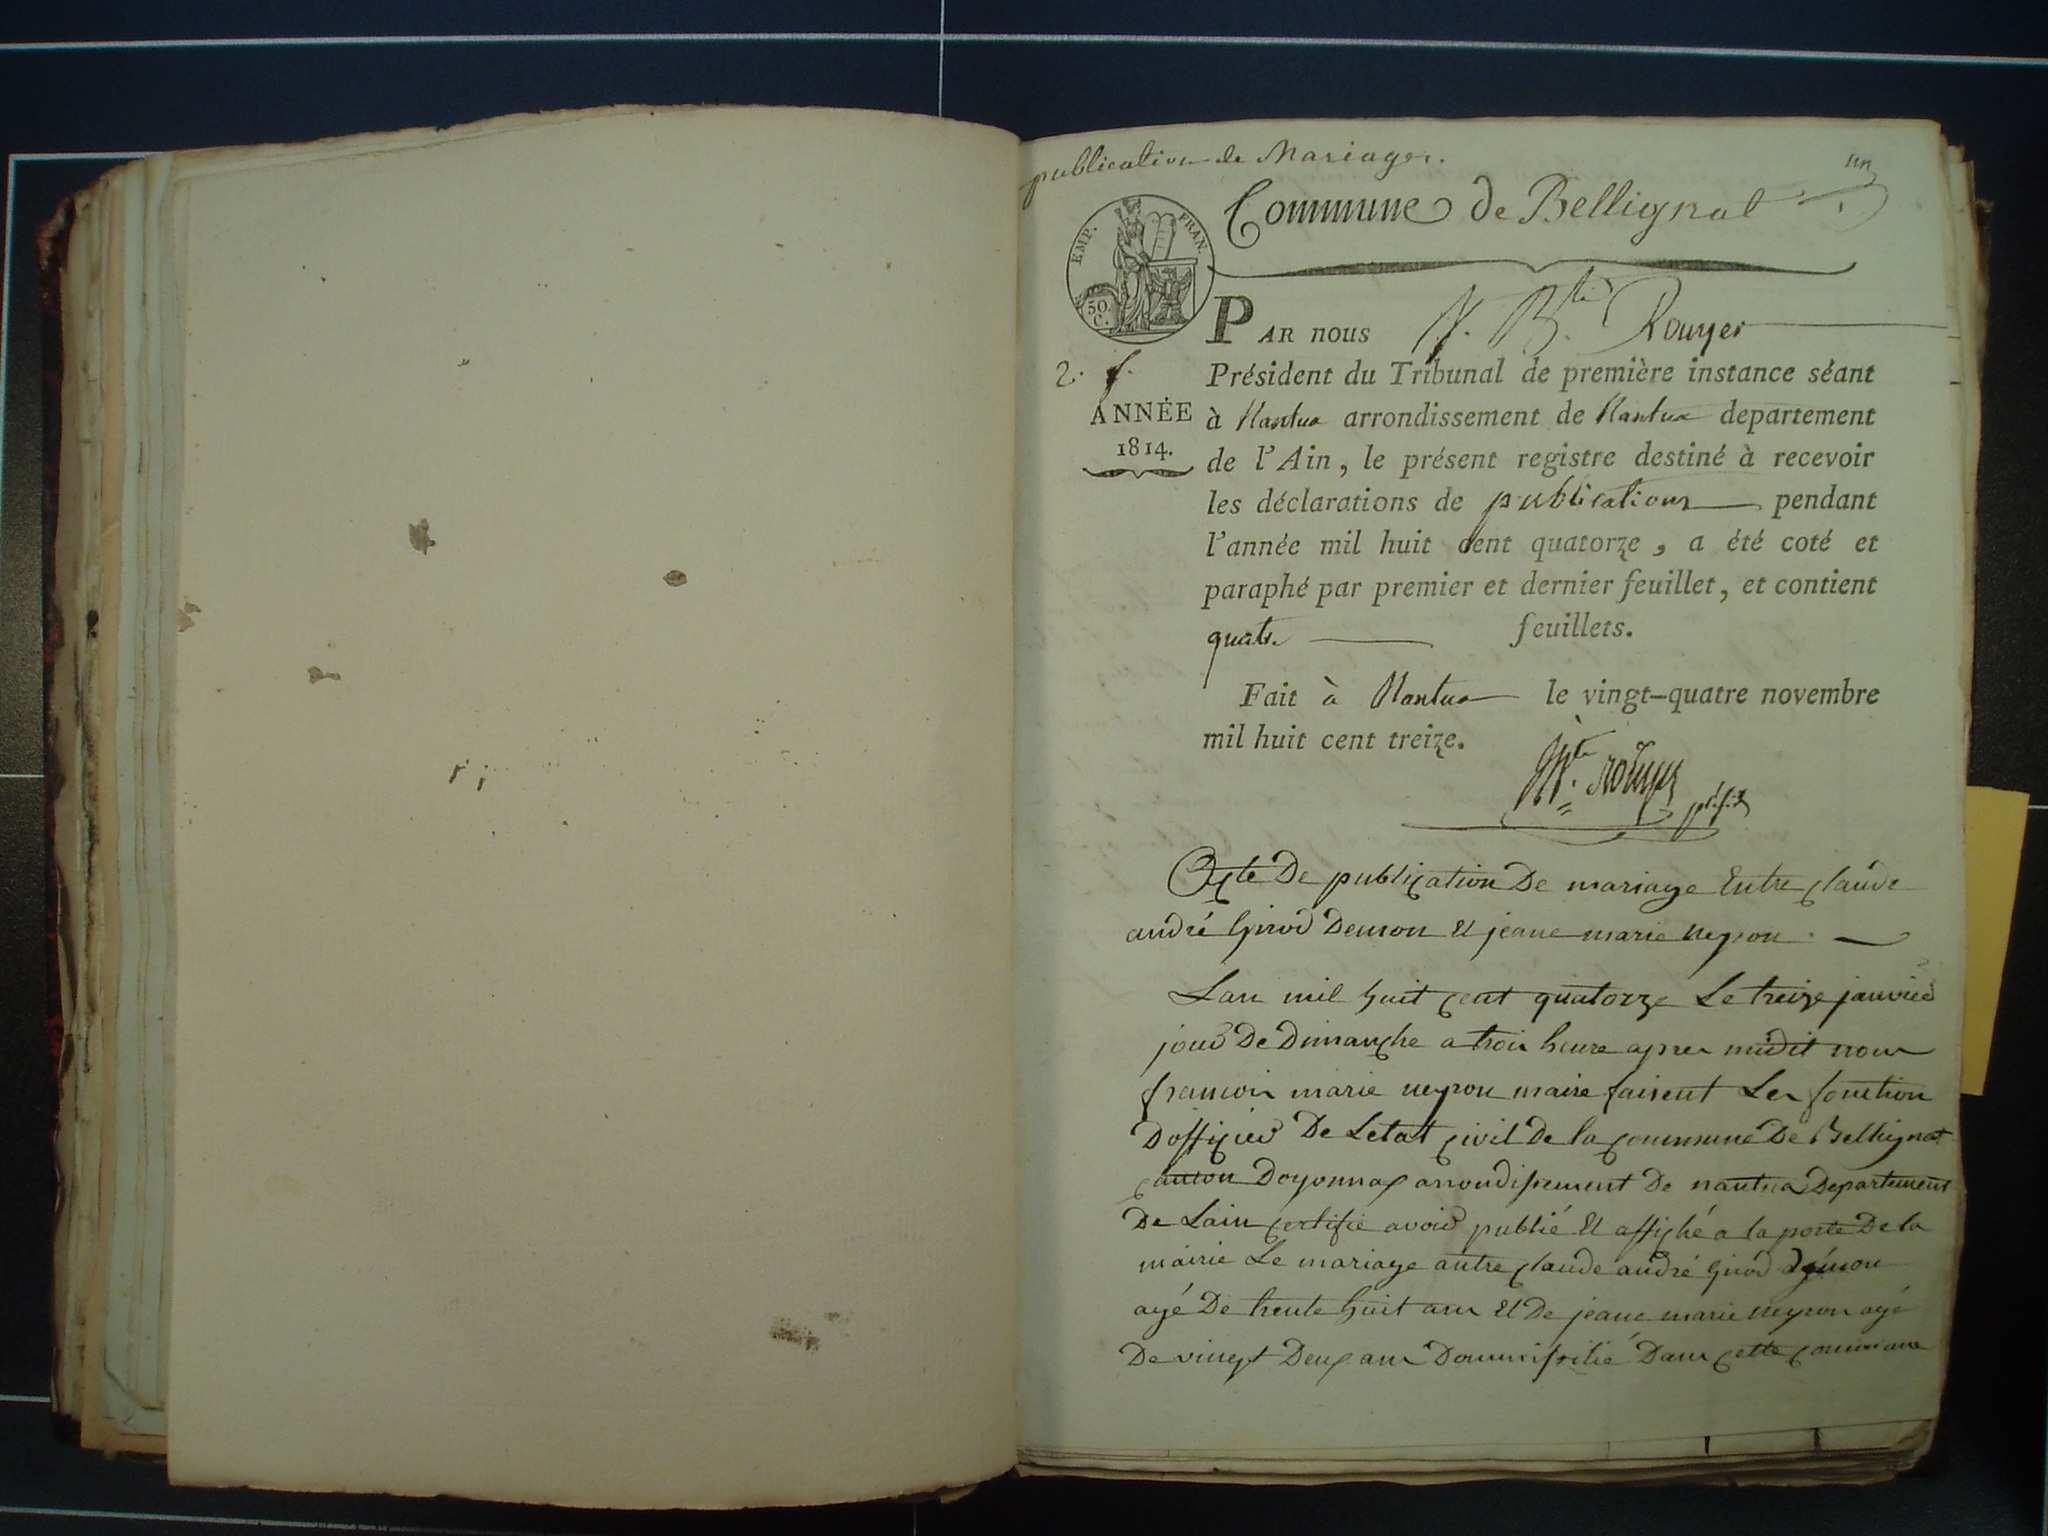 publication de Mariages.
un
Commune de Bellignat
EMP. FRAN.
50 C.
PAR NOUS Rouyer
2. f.
Président du Tribunal de première instance séant
ANNÉE
1814.
à Nantua arrondissement de Nantua departement
de l'Ain, le présent registre destiné à recevoir
les déclarations de publications pendant
l'année mil huit cent quatorze, a été coté et
paraphé par premier et dernier feuillet, et contient
quatre feuillets.
Fait à Nantua le vingt-quatre novembre
mil huit cent treize.
Rouyer
Acte De publication De mariage Entre claude
andré Girod Demon Et jeane marie neyron.
Lan mil huit cent quatorze Le treize janvier
jour De Dimanche a troi heure apres midit nous
francois marie neyron maire faisent Les fonction
Dofficier De Letat civil De la commune De Bellignat
canton Doyonnax arrondissement De nantua Departement
De Lain certifie avoir publié Et affiché a la porte De la
mairie Le mariage antre claude andré Girod Démon
agé De trente huit ans Et De jeane marie neyron agé
De vingt Deux ans Dommissilié Dans cette commune